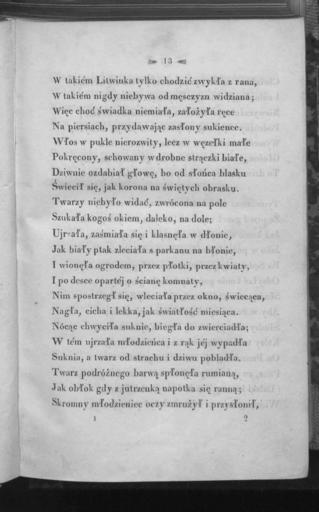 13
W takiém Litwinka tylko chodzić zwykła z rana,
W takiém nigdy niebywa od męsczyzn widziana;
Więc choć świadka niemiała, założyła ręce
Na piersiach, przydawając zasłony sukience.
Włos w pukle nierozwity, lecz w węzełki małe
Pokręcony, schowany w drobne strączki białe,
Dziwnie ozdabiał głowę, bo od słońca blasku
Świecił się, jak korona na świętych obrasku.
Twarzy niebyło widać, zwrócona na pole
Szukała kogoś okiem, daleko, na dole;
Ujrzała, zaśmiała się i klasnęła w dłonie,
Jak biały ptak zleciała z parkanu na błonie,
I wionęła ogrodem, przez płotki, przez kwiaty,
I po desce opartéj o ścianę komnaty,
Nim spostrzegł się, wleciała przez okno, świecąca,
Nagła, cicha i lekka, jak światłość miesiąca.
Nócąc chwyciła suknie, biegła do zwierciadła;
W tém ujrzała młodzieńca i z rąk jéj wypadła
Suknia, a twarz od strachu i dziwu pobladła.
Twarz podróżnego barwą spłonęła rumianą,
Jak obłok gdy z jutrzenką napotka się ranną;
Skromny młodzieniec oczy zmrużył i przysłonił,
1 2